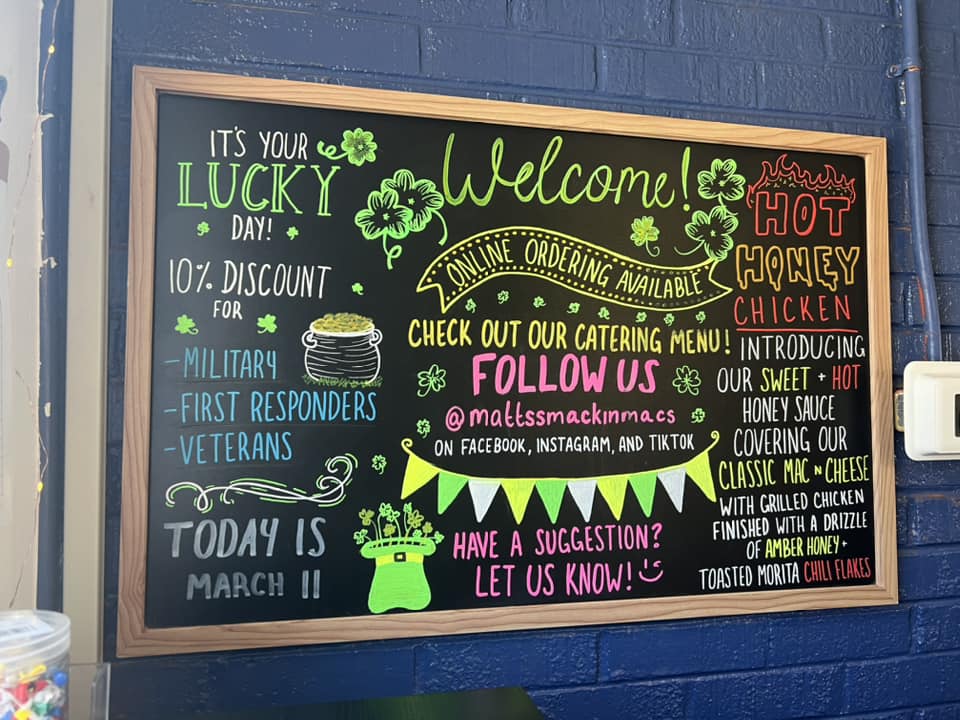 IT'S YOUR
LUCKY
DAY!
10% DISCOUNT
FOR
-MILITARY
-FIRST RESPONDERS
-VETERANS
TODAY IS
MARCH 11
Welcome!
ONLINE ORDERING AVAILABLE
CHECK OUT OUR CATERING MENU!
FOLLOW US
@mattssmackinmacs
ON FACEBOOK, INSTAGRAM, AND TIKTOK
HAVE A SUGGESTION?
LET US KNOW!
HOT
HONEY
CHICKEN
INTRODUCING
OUR SWEET + HOT
HONEY SAUCE
COVERING OUR
CLASSIC MAC N CHEESE
WITH GRILLED CHICKEN
FINISHED WITH A DRIZZLE
OF AMBER HONEY +
TOASTED MORITA CHILI FLAKES